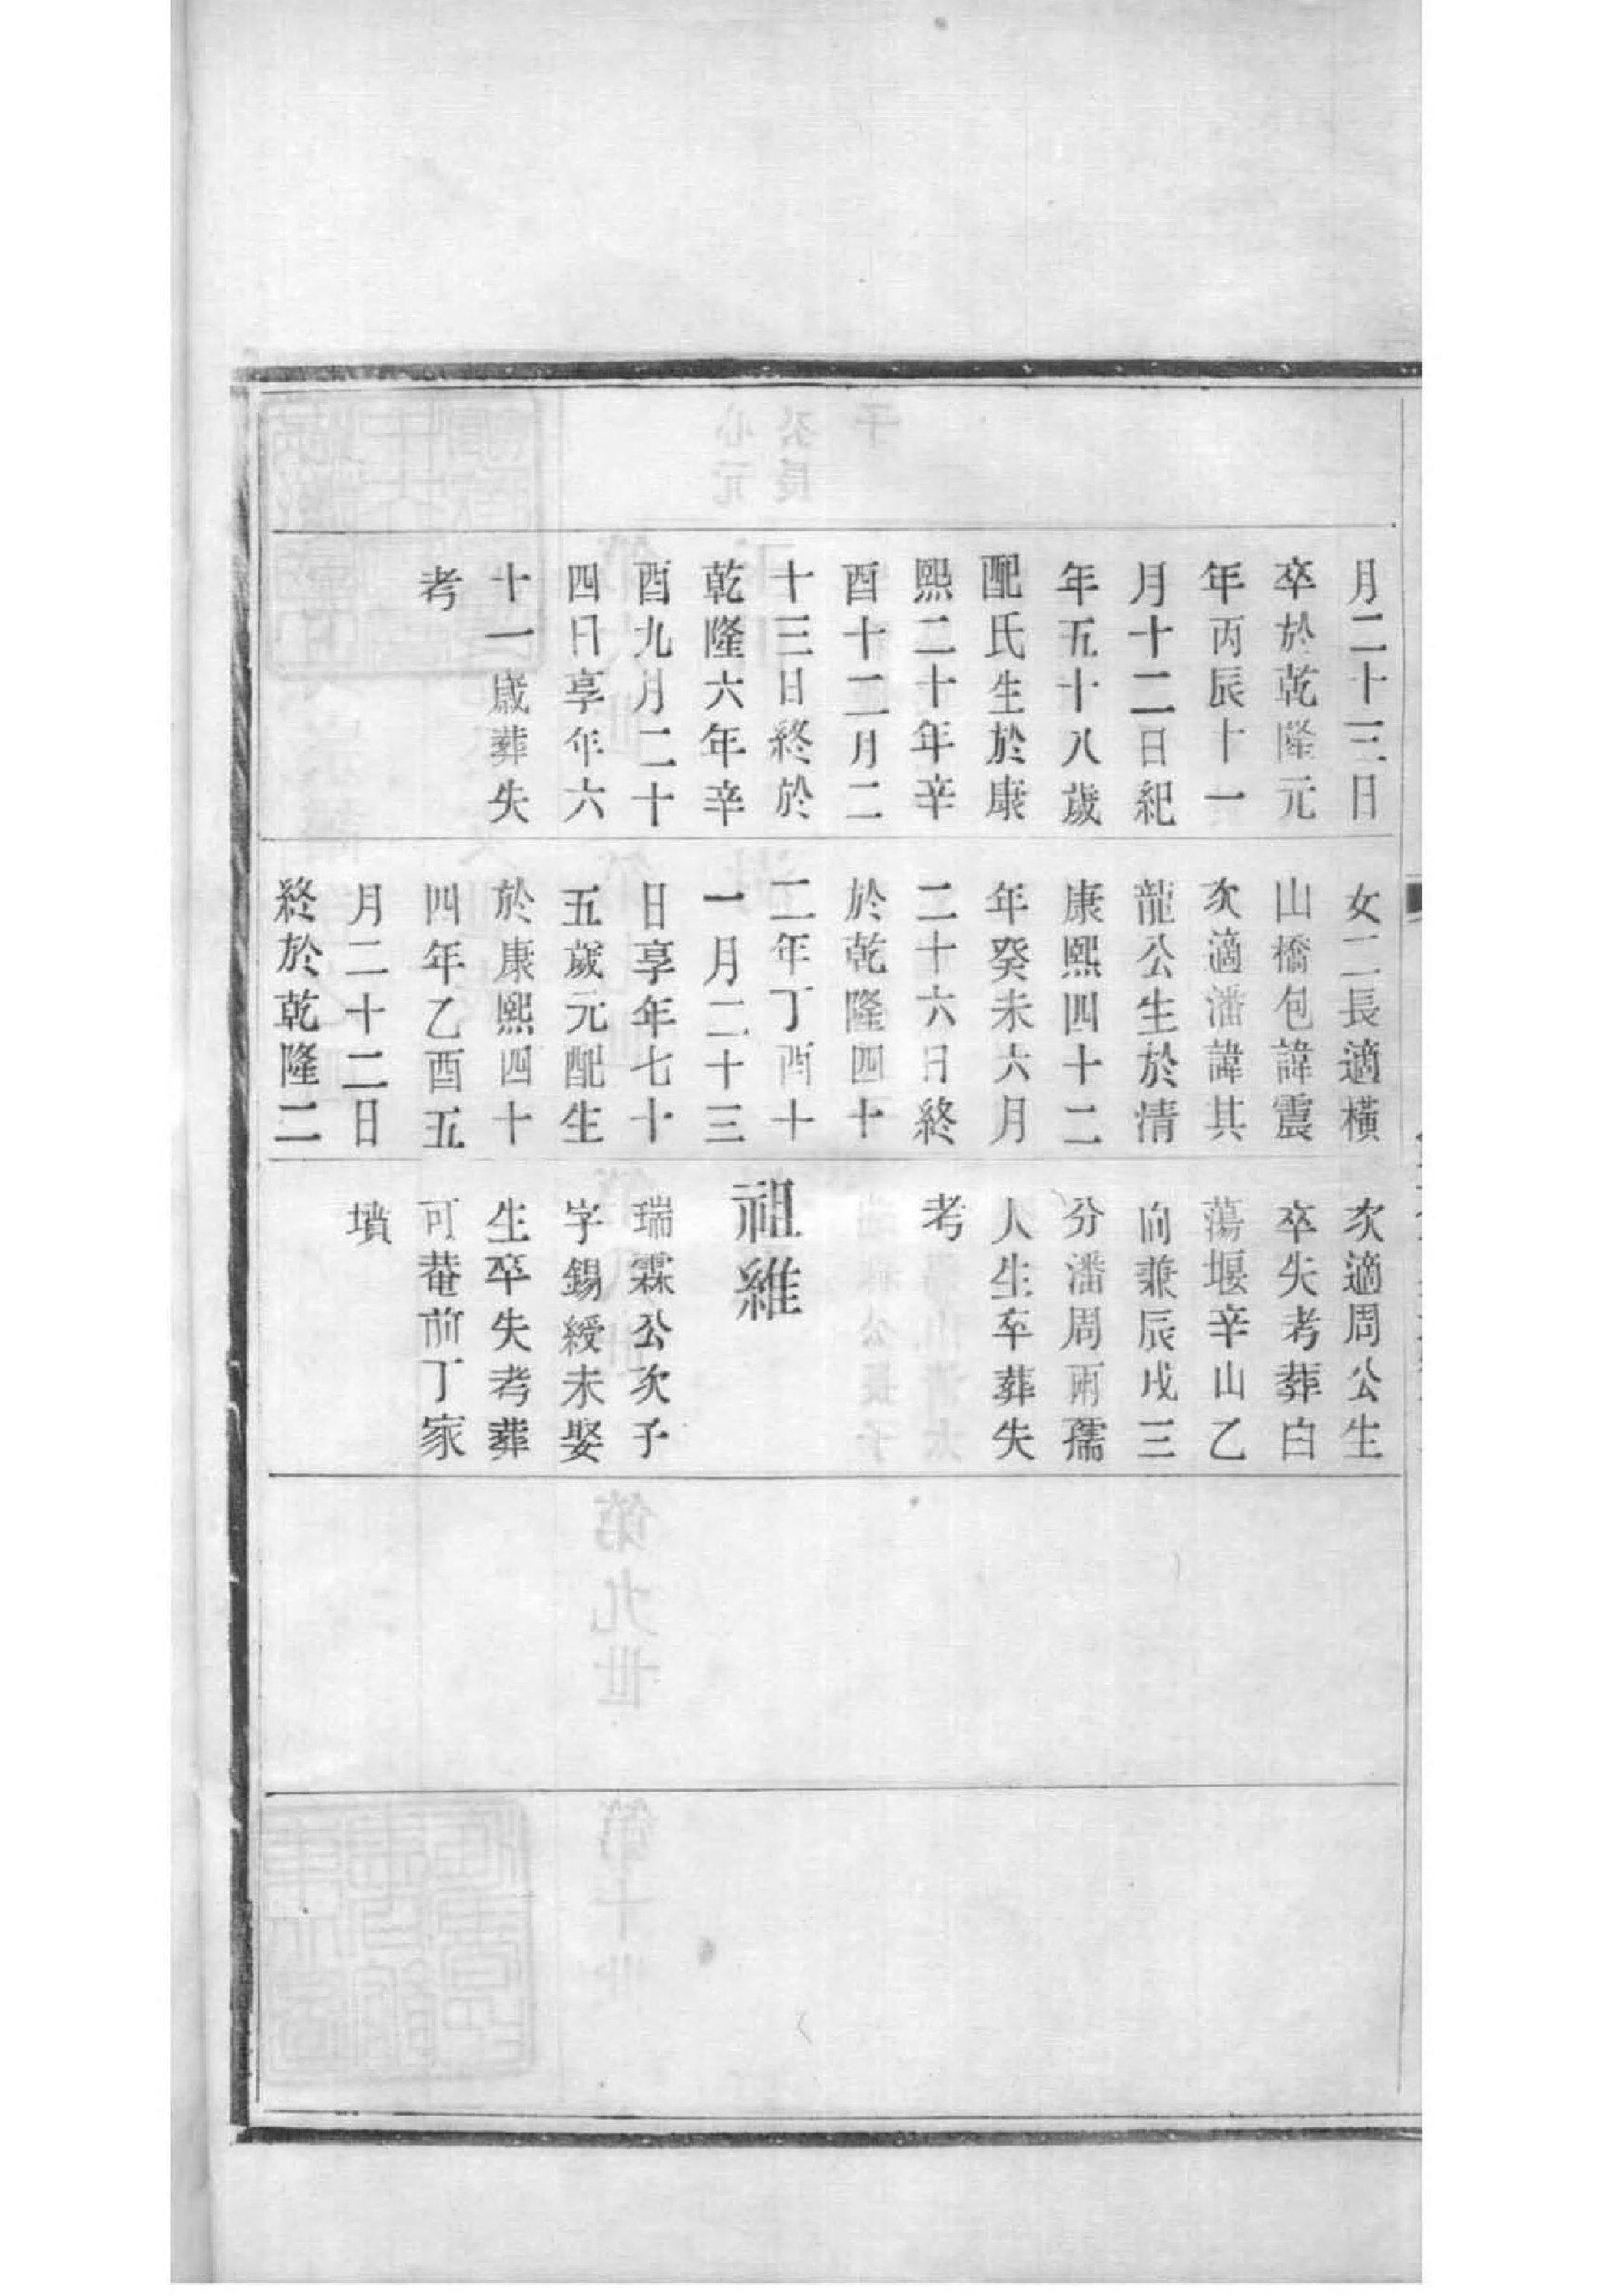 月二十三日
卒於乾隆元
年丙辰十一
月十二日紀
年五十八歲
配氏生於康
熙二十年辛
酉十二月二
十三日終於
乾隆六年辛
酉九月二十
四日享年六
十一歲葬失
考
女二長適橫
山橋包諱震
次適潘諱其
龍公生於清
康熙四十二
年癸未六月
二十六日終
於乾隆四十
二年丁酉十
一月二十三
日享年七十
五歲元配生
於康熙四十
四年乙酉五
月二十二日
終於乾隆二
次適周公生
卒失考葬白
蕩堰辛山乙
向兼辰戌三
分潘周兩孺
人生卒葬失
考
祖維
瑞霖公次子
字錫綬未娶
生卒失考葬
可菴前丁家
墳